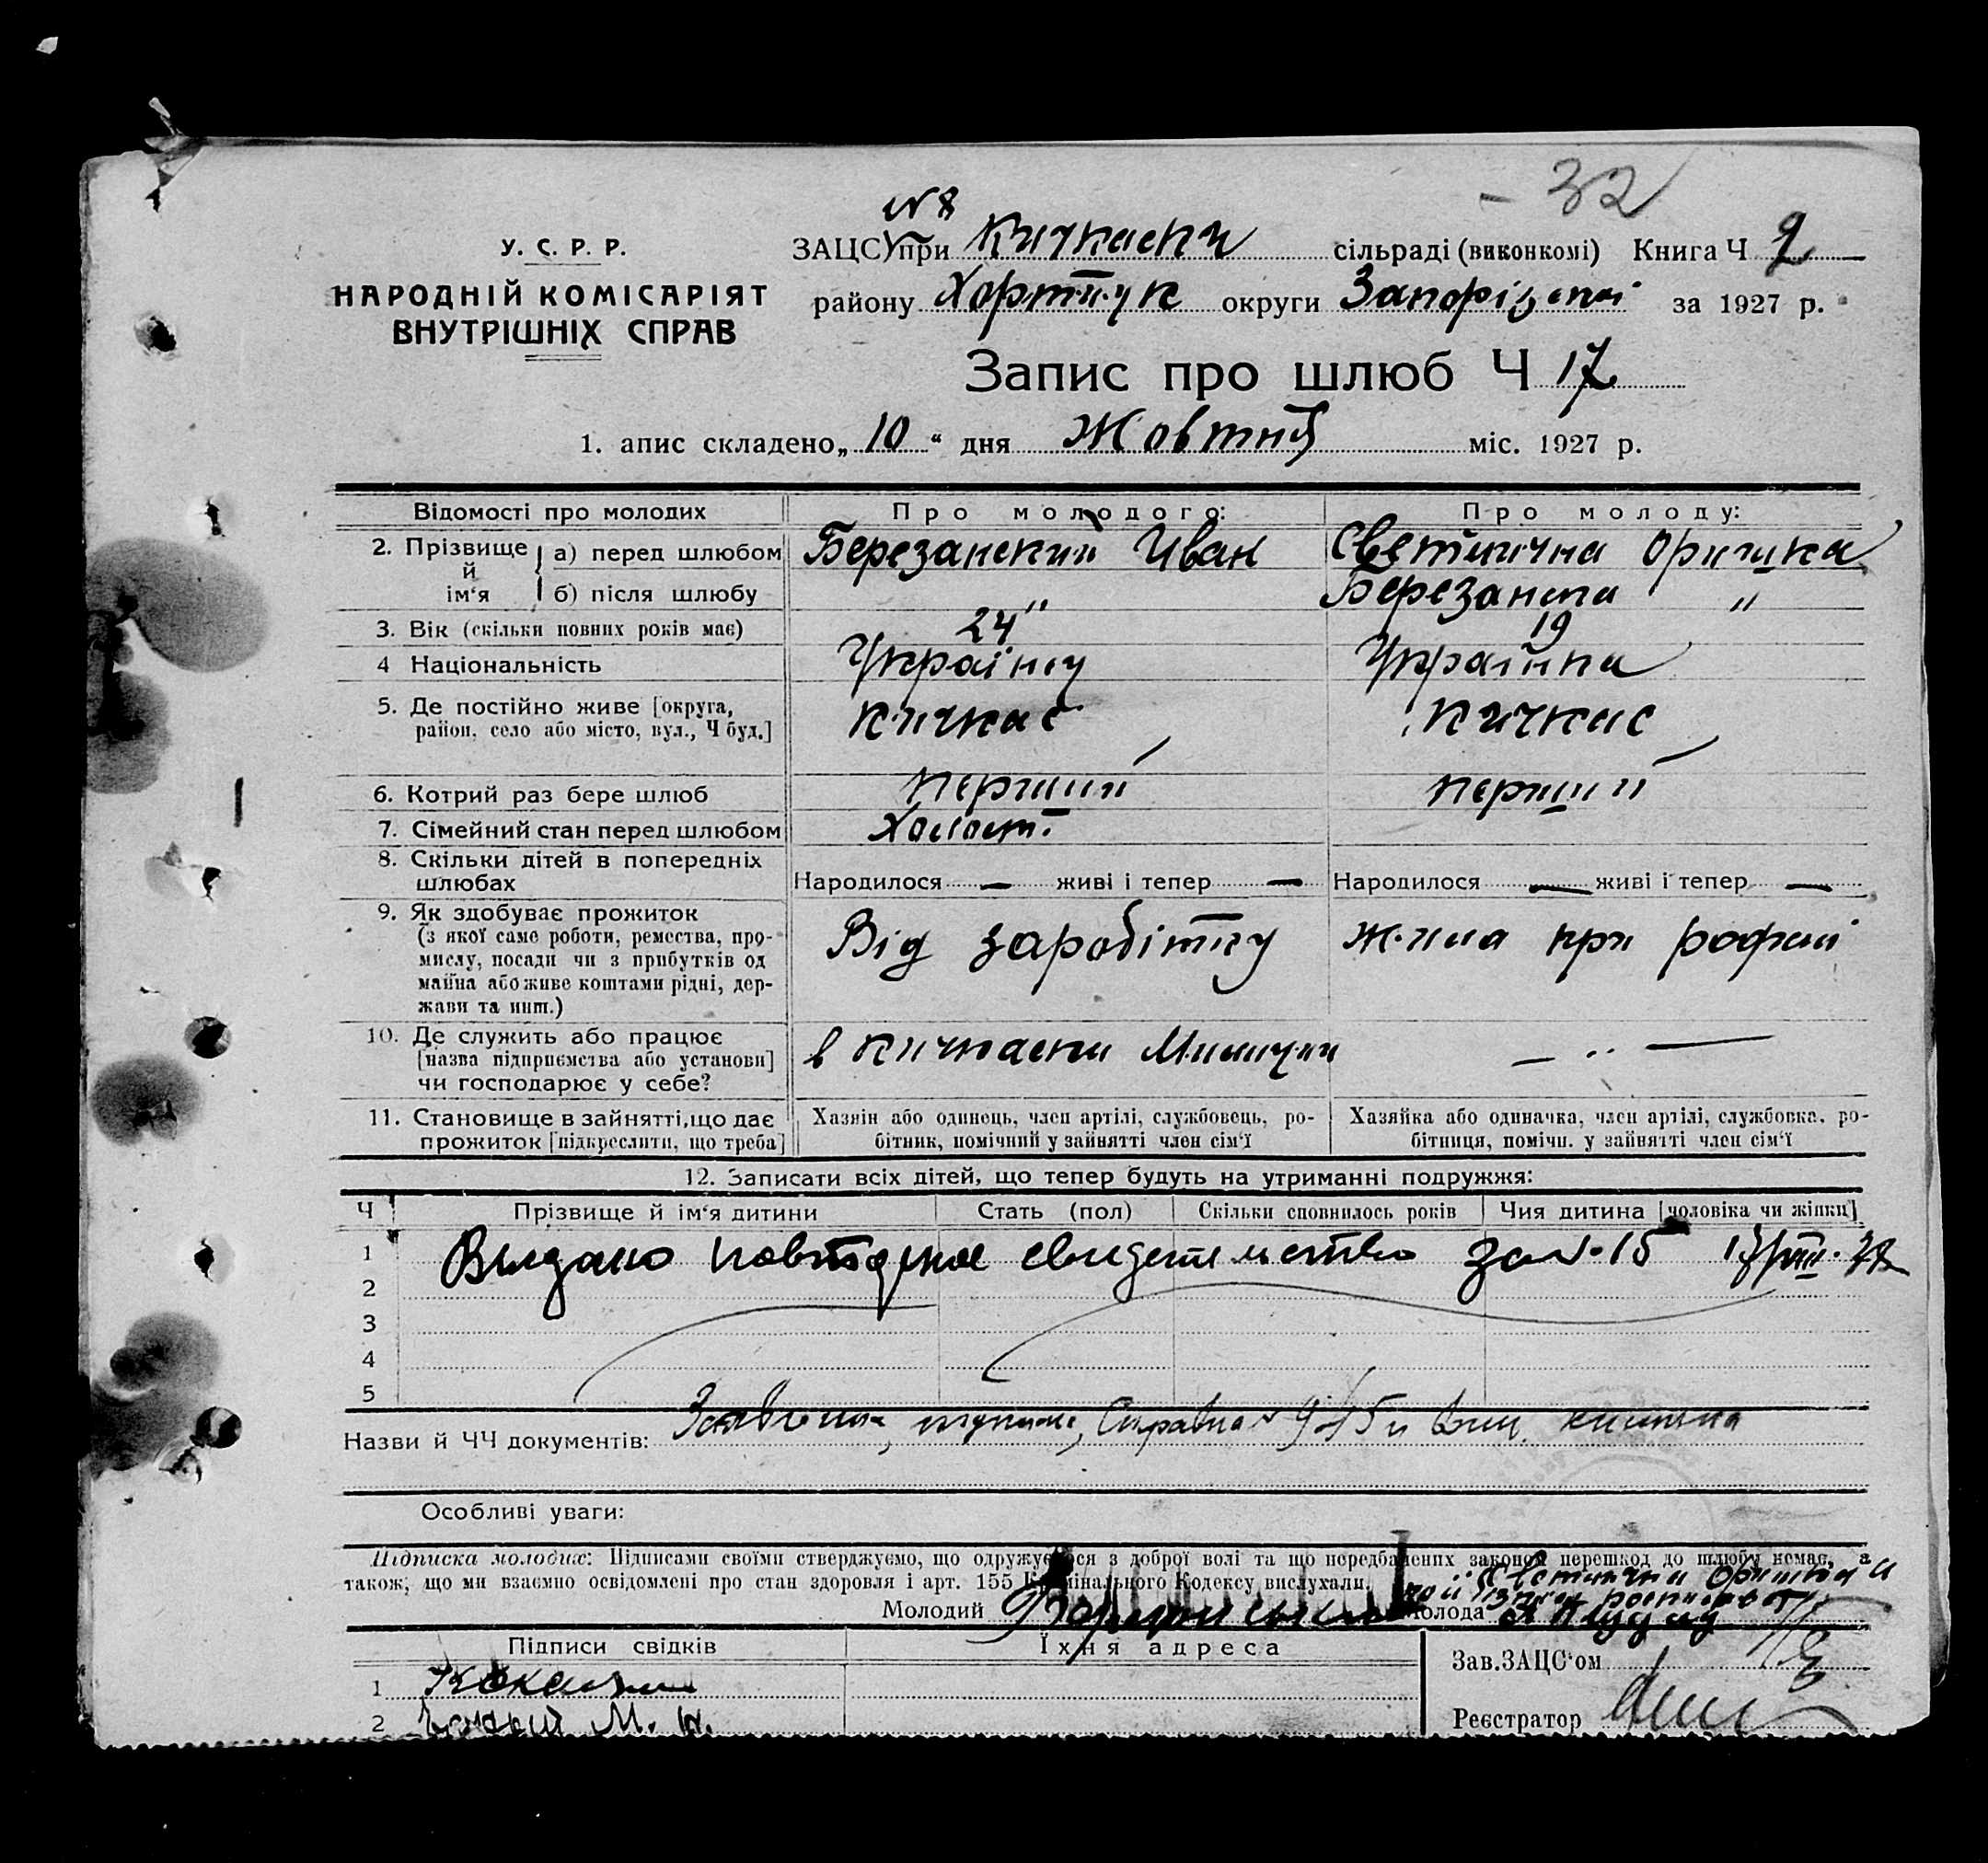 - 32
№ 8
У. С. Р. Р.
НАРОДНІЙ КОМІСАРІЯТ
ВНУТРІШНІХ СПРАВ
ЗАЦС при Кичкаски сільраді (виконкомі) Книга Ч 2
району Хортицк округи Запорізькой за 1927 р.
Запис про шлюб Ч 17
1. апис складено „ 10 “ дня Жовтня міс. 1927 р.
Відомості про молодих Про молодого: Про молоду:
2. Прізвище й ім‘я а) перед шлюбом Березанский Иван Светлична Оришка
б) після шлюбу " Березанска "
3. Вік (скільки повних років має) 24 19
4 Національність Українец Українка
5. Де постійно живе [округа, Кичкас Кичкас
район, село або місто, вул., Ч буд.]
6. Котрий раз бере шлюб перший перший
7. Сімейний стан перед шлюбом Холост.
8. Скільки дітей в попередніх
шлюбах Народилося — живі і тепер — Народилося — живі і тепер —
9. Як здобуває прожиток
(з якої саме роботи, ремества, про-
мислу, посади чи з прибутків од
майна або живе коштами рідні, дер-
жави та инш.)
Від заробітку жила при
10. Де служить або працює
[назва підприємства або установи]
чи господарює у себе?
в Кичкаски — " —
11. Становище в зайнятті, що дає
прожиток [підкреслити, що треба]
Хазяїн або одинець, член артілі, службовець, ро-
бітник, помічний у зайнятті член сім‘ї
Хазяйка або одиначка, член артілі, службовка, ро-
бітниця, помічн. у зайнятті член сім‘ї
12. Записати всіх дітей, що тепер будуть на утриманні подружжя:
Ч Прізвище й ім‘я дитини Стать (пол) Скільки сповнилось років Чия дитина [чоловіка чи жінки]
1 Выдано повторное свидетельство за № 15
2
3
4
5
Назви й ЧЧ документів: Заявления, Справка
Особливі уваги:
Підписка молодих: Підписами своїми стверджуємо, що одружуємося з доброї волі та що передбачених законом перешкод до шлюбу немає, а
також, що ми взаємно освідомлені про стан здоровля і арт. 155 Кримінального Кодексу вислухали.
Светлична Оришка
Молодий Молода
Підписи свідків Їхня адреса
Зав. ЗАЦС‘ом
1
2 М.
Реєстратор